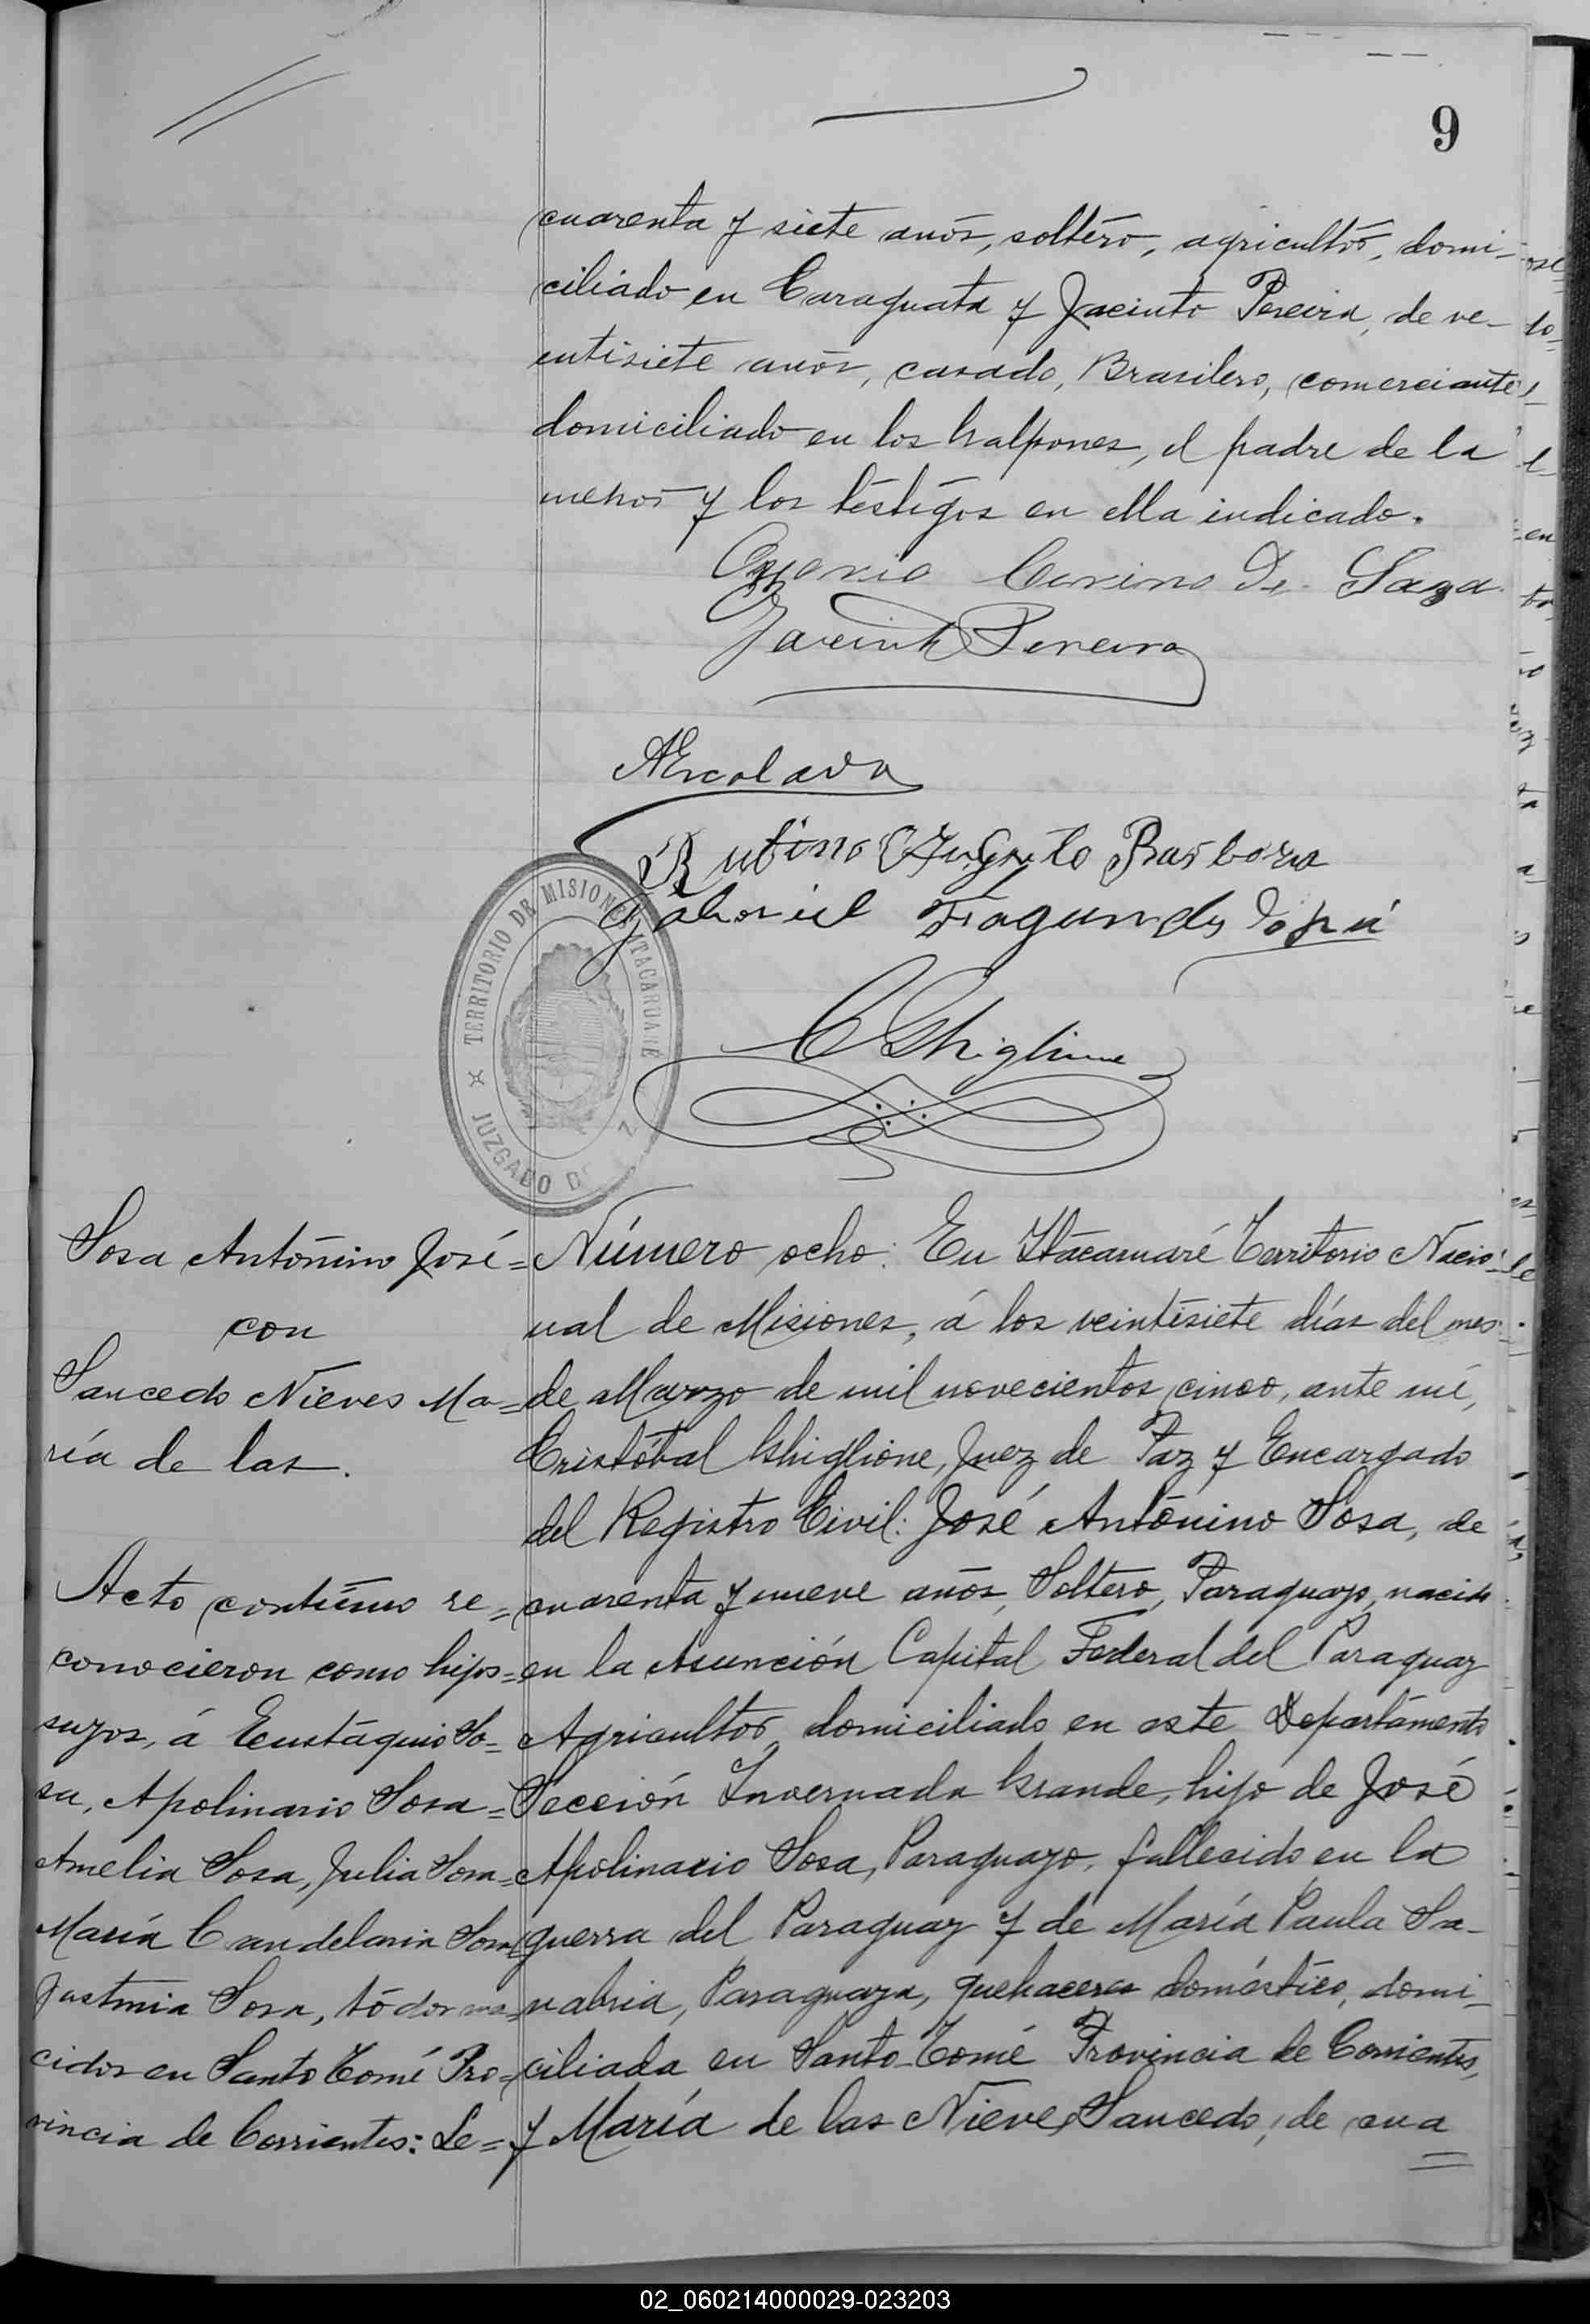 9
cuarenta y siete años, soltero, agricultor, domi-
ciliado en Caraguata y Jacinto Pereira, de ve-
entisiete años, casado, Brasilero, comerciante
domiciliado en los Galpones, el padre de la
menor y los testigos en ella indicado.
Jacinto Pereira
Barboza
Gabriel Fagundes
C Ghiglione
TERRITORIO DE MISIONES ITACARUARÉ
JUZGADO DE
Sosa Antonino José=
con
Saucedo Nieves Ma=
ría de las.
Acto continuo re=
conocieron como hijos=
suyos, á Eustaquio So=
sa, Apolinario Sosa=
Amelia Sosa, Julia Sosa=
María Candelaria Sosa
Justinia Sosa, todos na=
cidos en Santo Tomé Pro=
vincia de Corrientes: Le=
Número ocho: En Itacaruaré Territorio Nacio-
nal de Misiones, á los veintisiete días del mes
de Marzo de mil novecientos cinco, ante mí,
Cristóbal Ghiglione, Juez de Paz y Encargado
del Registro Civil: José Antonino Sosa, de
cuarenta y nueve años, Soltero, Paraguayo, nacido
en la Asunción Capital Federal del Paraguay
Agricultor domiciliado en este Departamento
Sección Invernada Grande, hijo de José
Apolinario Sosa, Paraguayo, fallecido en la
guerra del Paraguay y de María Paula Sa-
nabria, Paraguaya, quehaceres doméstico, domi-
ciliada en Santo Tomé Provincia de Corrientes,
y María de las Nieves Saucedo, de cua
02_060214000029-023203